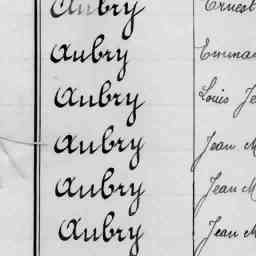 Aubry Ernest
Aubry Emma
Aubry Louis Je
Aubry Jean M
Aubry Jean M
Aubry Jean M